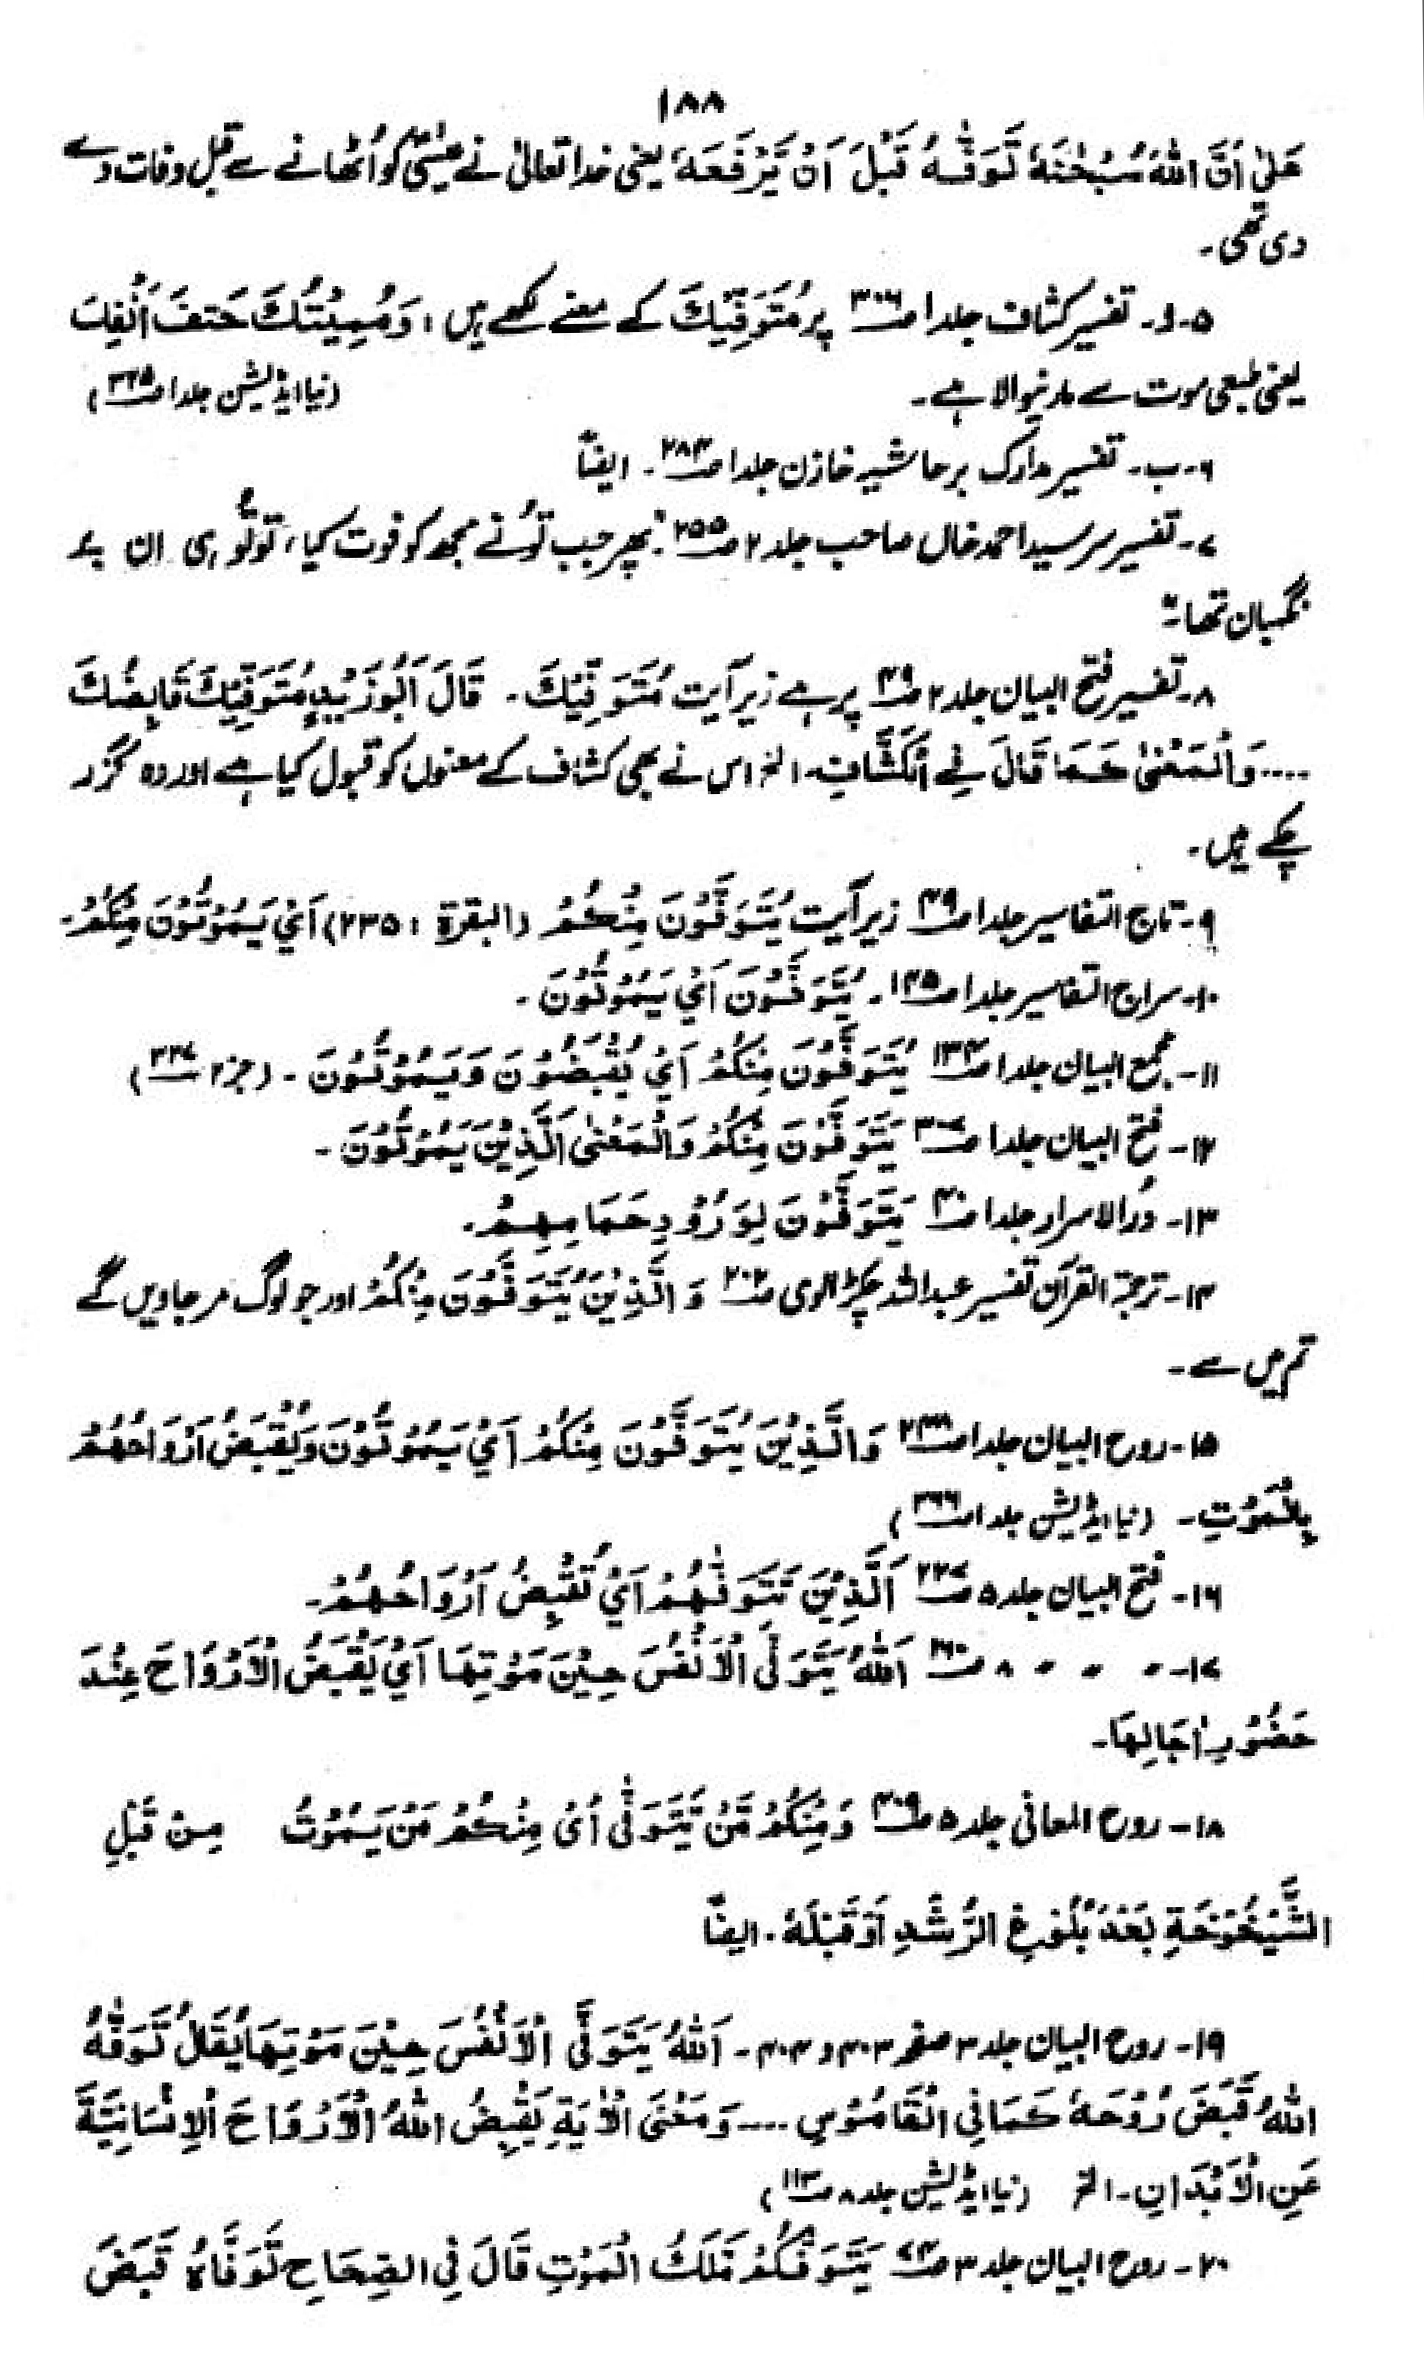 ۱۸۸
عَلٰی اَنَّ اللّٰہَ سُبْحٰنَہٗ تَوَفّٰہُ قَبْلَ اَنْ یَّرْفَعَہٗ یعنی خدا تعالیٰ نے عیسیٰؑ کو اُٹھانے سے قبل وفات دے
دی تھی۔
۵۔ و۔ تفسیر کشاف جلد ۱ ص۳۰۶ پر مُتَوَفِّیْکَ کے معنے لکھے ہیں: وَمُمِیْتُکَ حَتْفَ اَنْفِکَ
یعنی طبعی موت سے مارنیوالا ہے۔ (نیا ایڈیشن جلد ۱ ص۳۲۵)
۶۔ ب۔ تفسیر مدارک بر حاشیہ خازن جلد ۱ ص۲۸۳۔ ایضاً
۷۔ تفسیر سر سید احمد خاں صاحب جلد ۲ ص۲۵۵ "پھر جب تُو نے مجھ کو فوت کیا، تو تُو ہی ان پر
نگہبان تھا۔"
۸۔ تفسیر فتح البیان جلد ۲ ص۴۹ پر ہے زیر آیت مُتَوَفِّیْکَ۔ قَالَ اَبُوْ زَیْدٍ مُتَوَفِّیْکَ قَابِضُکَ
.... وَالْمَعْنٰی کَمَا قَالَ فِی الْکَشَّافِ۔ الخ اس نے بھی کشاف کے معنوں کو قبول کیا ہے اور وہ گزر
چکے ہیں۔
۹۔ تاج التفاسیر جلد ۱ ص۳۹ زیر آیت یُتَوَفَّوْنَ مِنْکُمْ (البقرۃ: ۲۳۵) اَیْ یَمُوْتُوْنَ مِنْکُمْ۔
۱۰۔ سراج التفاسیر جلد ۱ ص۱۳۵۔ یُتَوَفَّوْنَ اَیْ یَمُوْتُوْنَ۔
۱۱۔ مجمع البیان جلد ۱ ص۱۳۳ یُتَوَفَّوْنَ مِنْکُمْ اَیْ یُقْبَضُوْنَ وَیَمُوْتُوْنَ۔ (جز ۲ ص۳۳۷)
۱۲۔ فتح البیان جلد ۱ ص۳۰۷ یُتَوَفَّوْنَ مِنْکُمْ وَالْمَعْنٰی اَلَّذِیْنَ یَمُوْتُوْنَ۔
۱۳۔ دُر الاسرار جلد ۱ ص۴۰ یُتَوَفَّوْنَ لِوَرُوْدِ حَمَامِھِمْ۔
۱۴۔ ترجمۃ القرآن تفسیر عبداللہ چکڑالوی ص۲۰۲ وَالَّذِیْنَ یُتَوَفَّوْنَ مِنْکُمْ اور جو لوگ مر جاویں گے
تم میں سے۔
۱۵۔ روح البیان جلد ۱ ص۲۴۸ وَالَّذِیْنَ یُتَوَفَّوْنَ مِنْکُمْ اَیْ یَمُوْتُوْنَ وَیُقْبَضُ اَرْوَاحُھُمْ
بِالْمَوْتِ۔ (نیا ایڈیشن جلد ۱ ص۳۶۶)
۱۶۔ فتح البیان جلد ۵ ص۲۲۷ اَلَّذِیْنَ تَتَوَفّٰھُمْ اَیْ تَقْبِضُ اَرْوَاحَھُمْ۔
۱۷۔ " " " ۸ ص۲۶۰ اَللّٰہُ یَتَوَفَّی الْاَنْفُسَ حِیْنَ مَوْتِھَا اَیْ یَقْبَضُ الْاَرْوَاحَ عِنْدَ
حَضُوْرِ اٰجَالِھَا۔
۱۸۔ روح المعانی جلد ۵ ص۳۰۹ وَمِنْکُمْ مَّنْ یُّتَوَفّٰی اَیْ مِنْکُمْ مَنْ یَمُوْتُ مِنْ قَبْلِ
الشَّیْخُوْخَۃِ بَعْدَ بُلُوْغِ الرُّشْدِ اَوْ قَبْلَہٗ۔ ایضاً
۱۹۔ روح البیان جلد ۳ صفحہ ۴۰۳ و ۴۰۴۔ اَللّٰہُ یَتَوَفَّی الْاَنْفُسَ حِیْنَ مَوْتِھَا یُقَالُ تَوَفّٰہُ
اللّٰہُ قَبَضَ رُوْحَہٗ کَمَا فِی الْقَامُوْسِ .... وَمَعْنَی الْاٰیَۃِ یَقْبِضُ اللّٰہُ الْاَرْوَاحَ الْاِنْسَانِیَّۃَ
عَنِ الْاَبْدَانِ۔ الخ (نیا ایڈیشن جلد ۸ ص۱۱۳)
۲۰۔ روح البیان جلد ۳ ص۷۳ یَتَوَفّٰکُمْ مَّلَکُ الْمَوْتِ قَالَ فِی الصِّحَاحِ تَوَفَّاہُ قَبَضَ